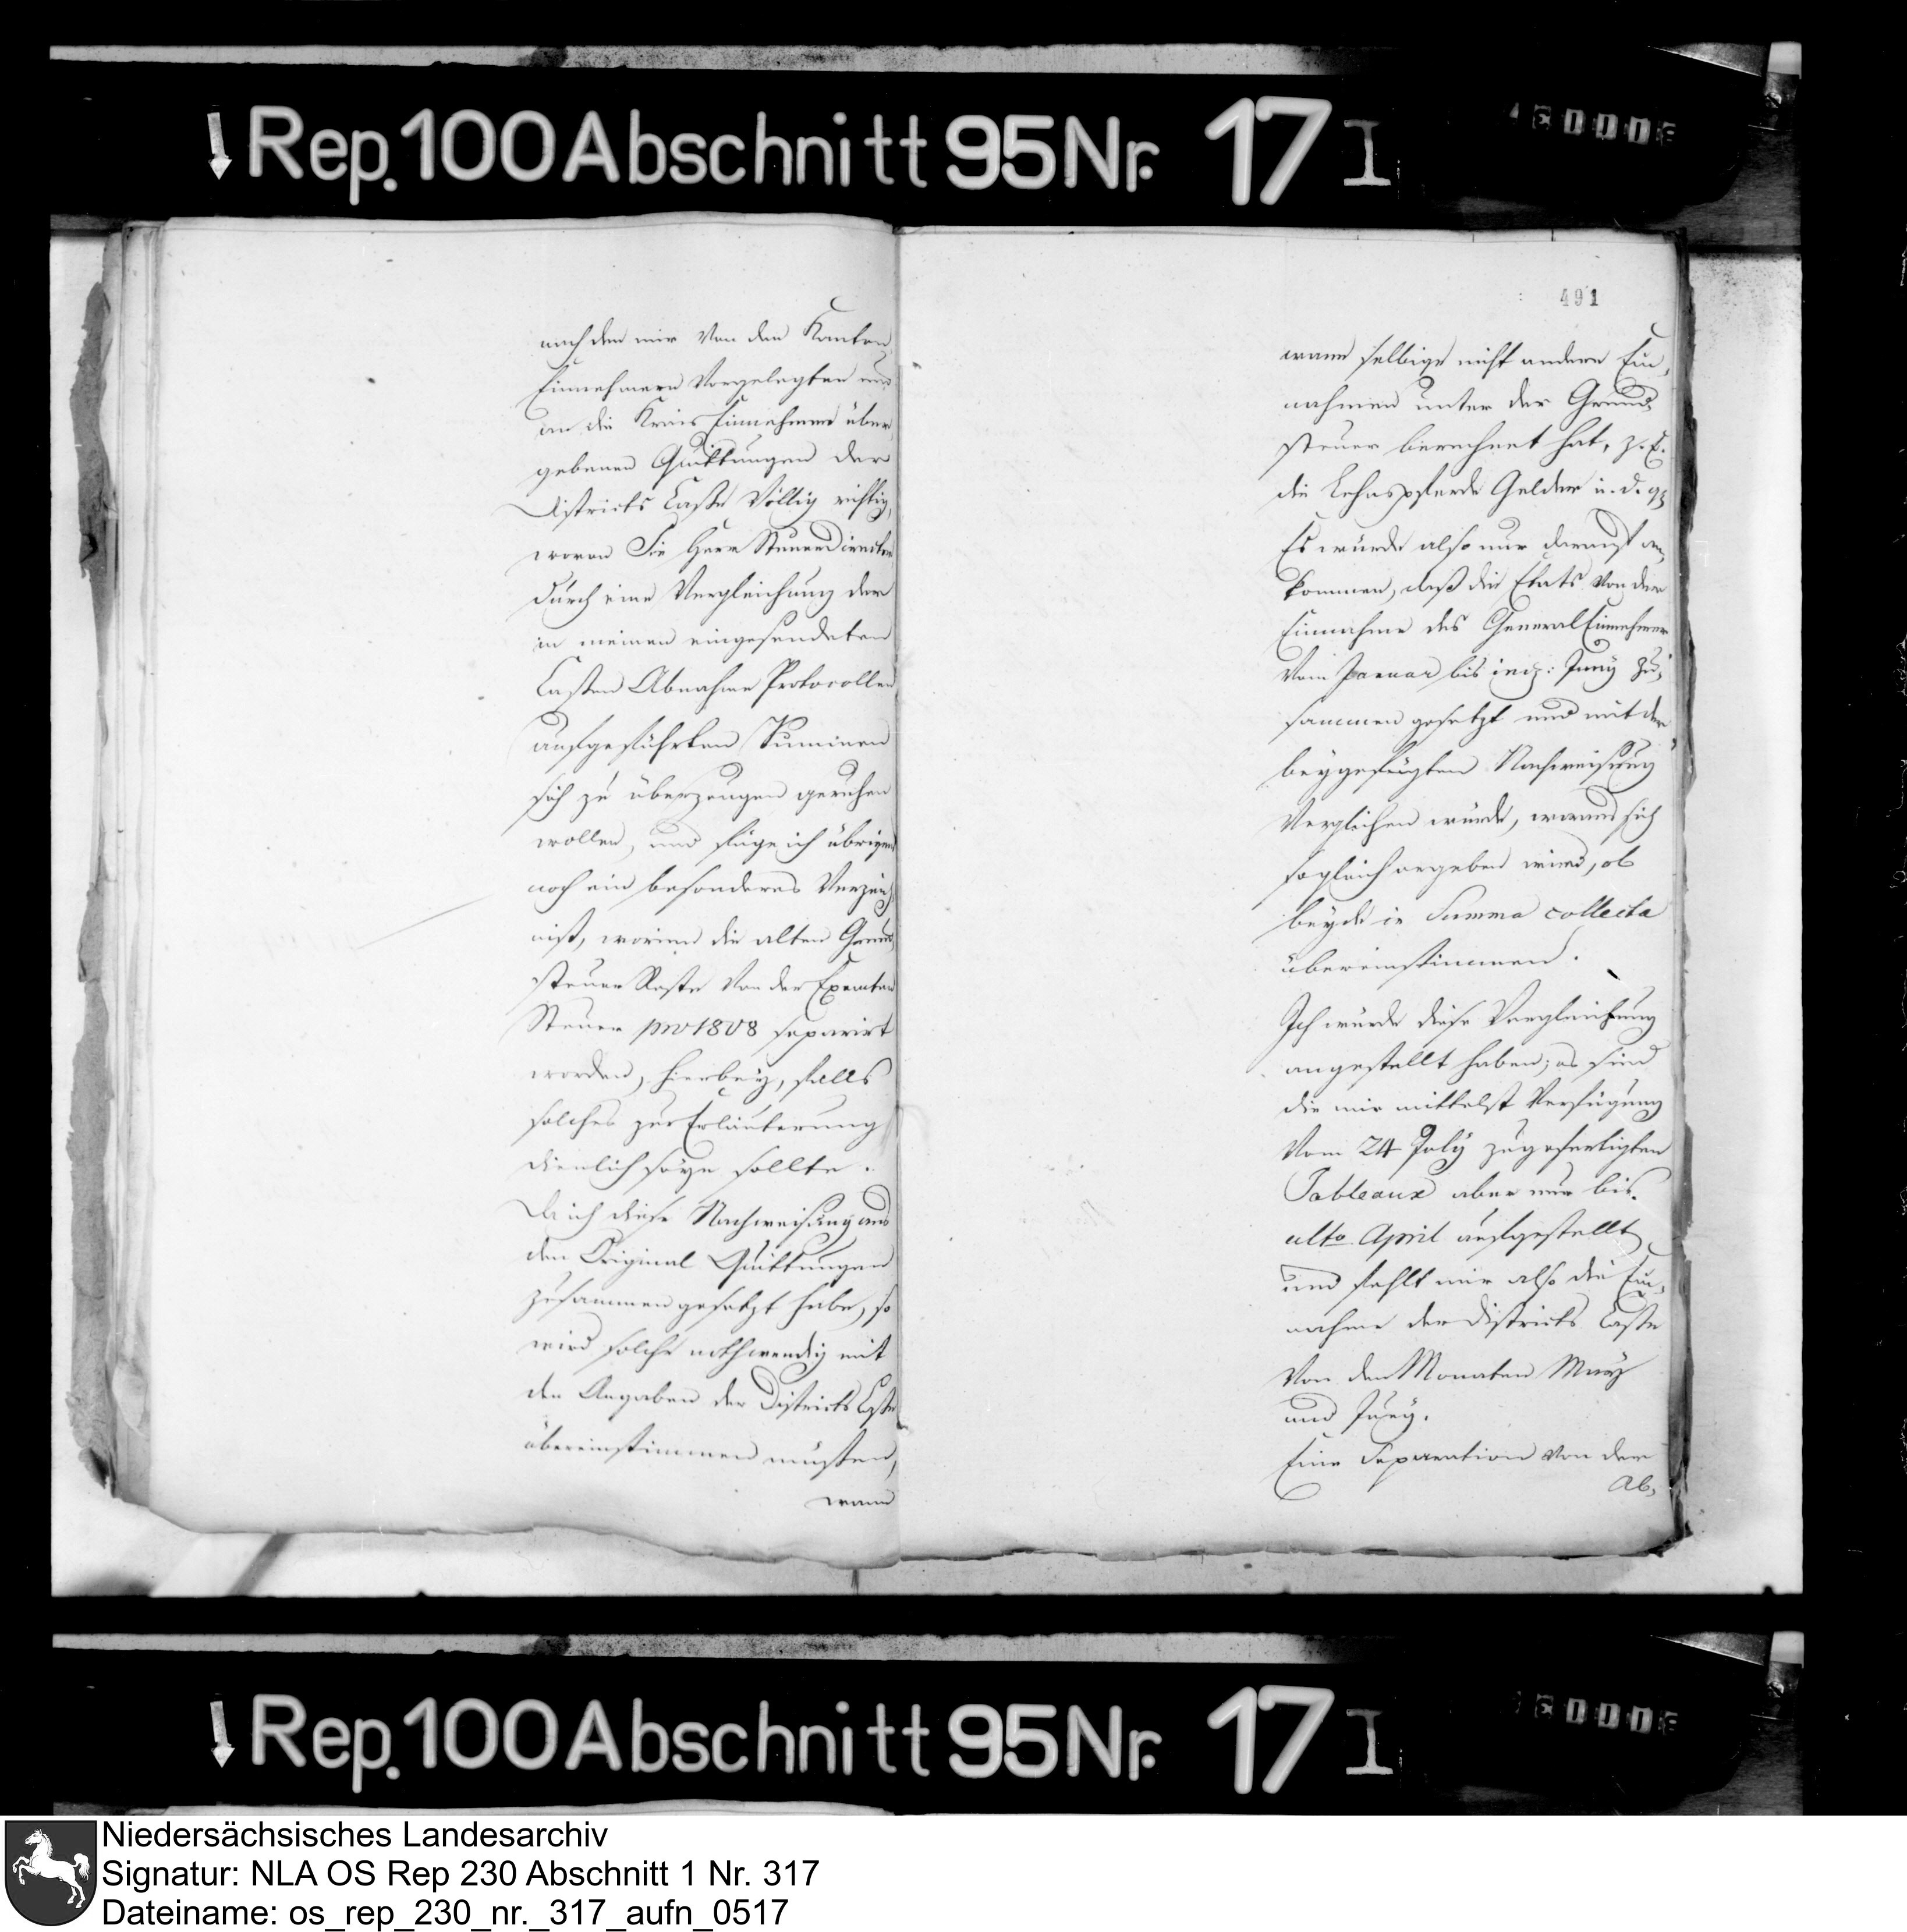 Rep. 100 Abschnitt 95 Nr. 17 I
nach den mir von den Kanton
Einnehmern vorgelegten und
an die Kreis Einnehmer über
gebenen Quittungen der
Districts Casse völlig richtig,
wovon Sie Herr Steuer Director
durch eine Vergleichung der
in meinen eingesendeten
Cassen Abnahme Protocollen
aufgeführten Summen
sich zu überzeugen geruhen
wollen, und füge ich übrigens
noch ein besonderes Verzeich
niß, worinn die alten Grund
steuer Reste von der Exemten
Steuer pro 1808 separirt
worden, hierbey, falls
solches zur Erläuterung
dienlich seyn sollte.
Da ich diese Nachweisung aus
den Original Quittungen
zusammengesetzt habe, so
wird solche nothwendig mit
den Angaben der Districts Casse
übereinstimmen müssen,
wann
491
wann selbige nicht andere Ein,
nahmen unter der Grund,
steuer berechnet hat, z. E.
die Lehnspferde Gelder u. d. g.
Es würde also nur darauf an,
kommen, daß die Etats von der
Einnahme des General Einnehmer
vom Januar bis incl: Juny zu,
sammen gesetzt und mit der
beygefügten Nachweisung
verglichen würde, woraus sich
sogleich ergeben wird, ob
beyde in Summa collecta
übereinstimmen.
Ich würde diese Vergleichung
angestellt haben; es sind
die mir mittelst Verfügung
vom 24 July zugefertigten
Tableaux aber nur bis
ulto April aufgestellt
und fehlt mir also die Ein,
nahme der Districts Casse
von den Monaten May
und Juny.
Eine Separation von den
Ab,
Rep. 100 Abschnitt 95 Nr. 17 I
Niedersächsisches Landesarchiv
Signatur: NLA OS Rep 230 Abschnitt 1 Nr. 317
Dateiname: os_rep_230_nr._317_aufn_0517